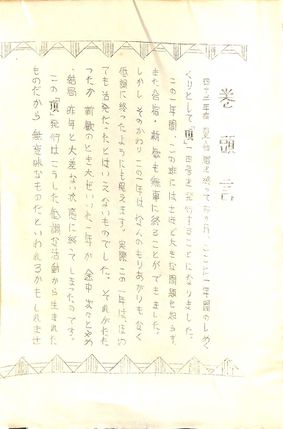 巻頭言
四十三年度 夏合宿を終って
くくりとして「頂」 四号を発行することになりました。
この一年間、この部にはさほど大きな問題も起らず、
また合宿・新歓も無事に終ることができました。
しかし、そのかわりこの一年は なんのもりあがりもなく
低調に終ったようにも思えます。実際 この一年は、
ても活発だったとはいえないものでした。それがたた
ったか 新歓のとき大ぜいいた一年が 途中 次々とやめ
結局 昨年と大差ない状態に終ってしまったのです。
この「頂」発行はこうした低調な活動から生まれた
ものだから 無意味なものだといわれるかもしれませ